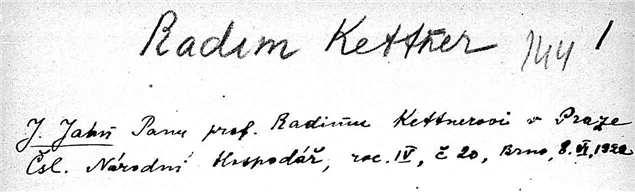 Radim Kettner 144 1
J. Jahn Panu prof. Radimu Kettnerovi v Praze
Čsl. Národní Hospodář, roc. IV, č 20, Brno, 8. VI, 1922